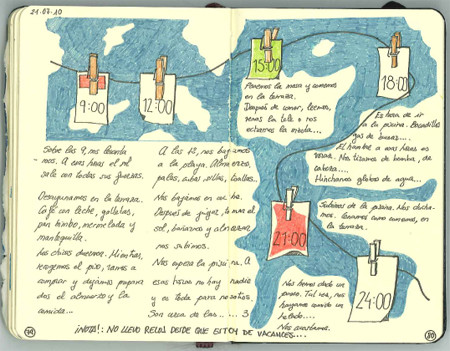 21.07.10
9:00
12:00
15:00
18:00
Sobre las 9, me levanto
A esas horas el sol
sale con todas sus fuerzas.
Desayunamos en la terraza.
Café con leche, galletas,
pan bimbo, mermelada y
mantequilla.
Los chicos duermen. Mientras,
recogemos el piso, vamos a
comprar y dejamos prepara-
dos el almuerzo y la
comida...
A las 12, nos bajamos
a la playa.
palas, cubos, sillas, toallas...
Nos bajamos en
Después de jugar, tomar el
sol, bañarnos y almorzar
nos subimos.
Nos espera la piscina. A
esas horas no hay nadie
y es toda para nosotros.
Son cerca de las ..... 3
Ponemos la mesa y comemos
en la terraza.
Después de comer, leemos,
vemos la tele o nos
echamos la siesta...
Es hora de ir
a la piscina. Bocadillos
El hambre a esas horas es
voraz. Nos tiramos de bomba, de
cabeza.....
Hinchamos globos de agua...
21:00
Subimos de la piscina. Nos ducha-
mos. Cenamos como comemos, en
la terraza.
24:00
Nos hemos dado un
paseo. Tal vez, nos
hayamos comido un
helado....
Nos acostamos.
¡NOTA!: NO LLEVO RELOJ DESDE QUE ESTOY DE VACANCES....
79
80